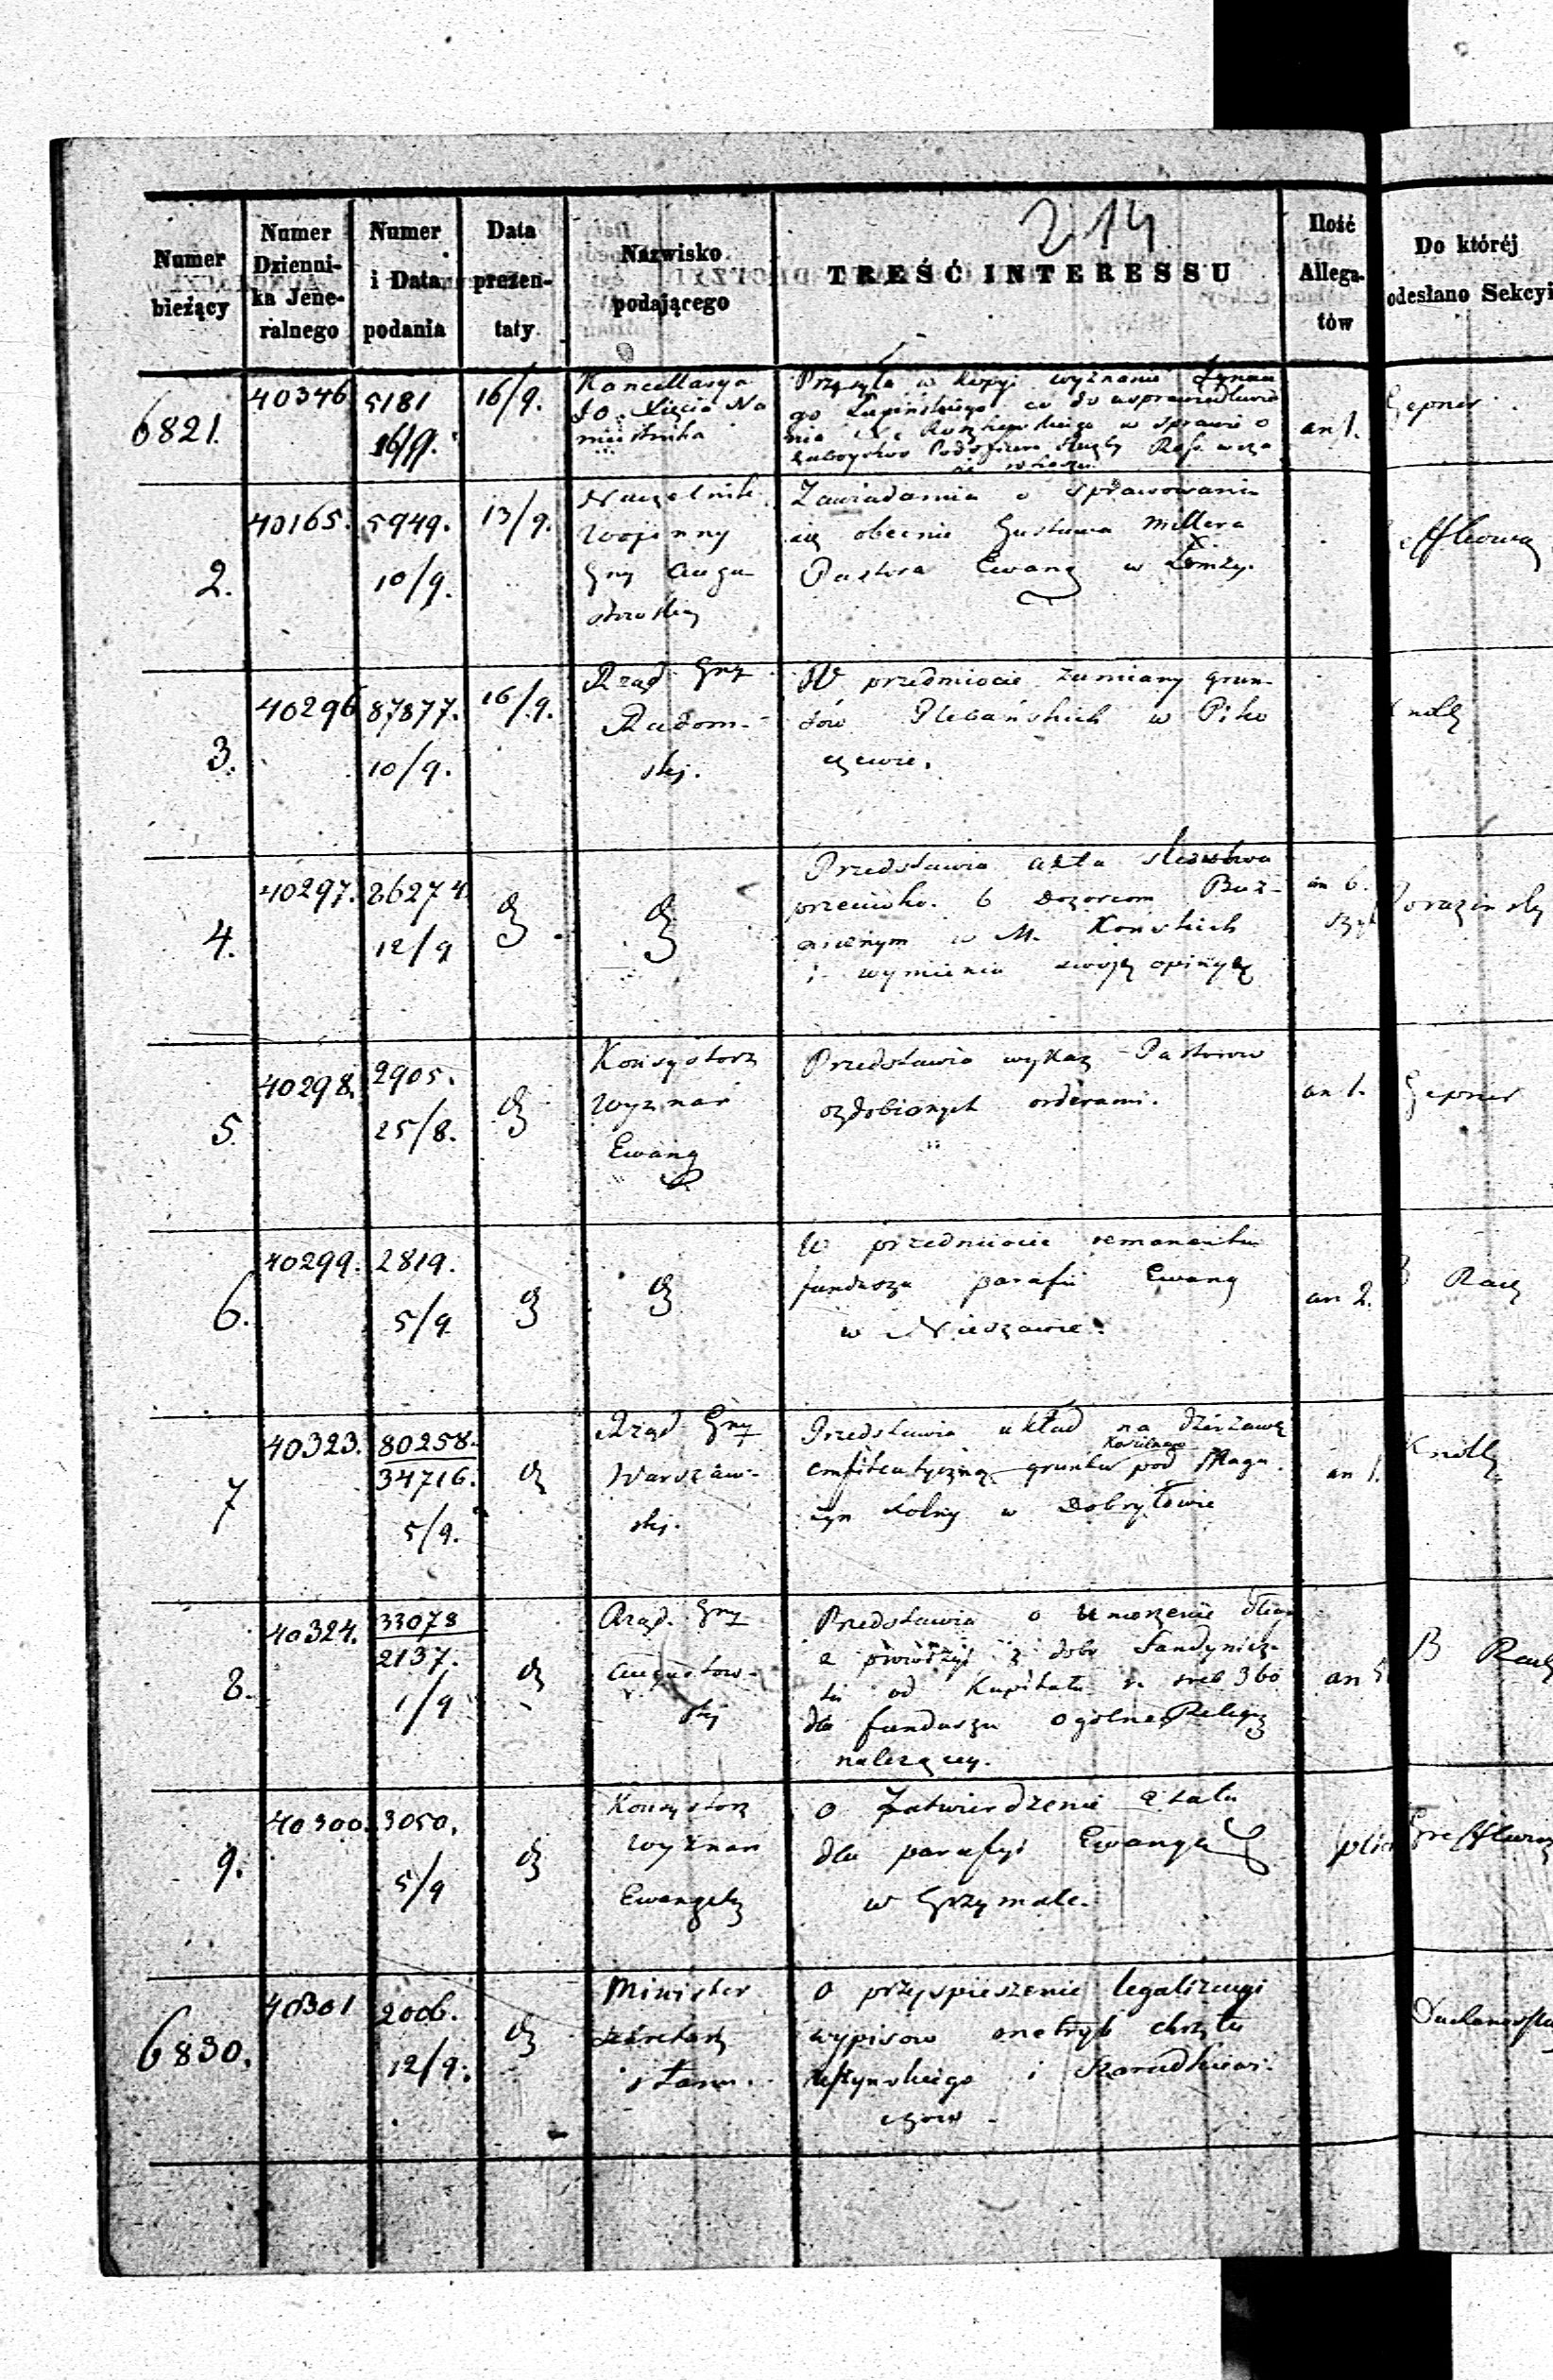 214
Numer bieżący
Numer Dzienni- ka Jene- ralnego
Numer i Data podania
Data prezen- taty
Nazwisko podającego
TREŚĆ INTERESSU
Ilość Allega- tów
Do któréj odesłano Sekcyi
6821.
40346
5181
16/9.
16/9.
Kancellarya
JO. Xięcia Na
miestnika
Przesyła w kopyi wyznanie
go co do usprawiedliwie
nia w sprawie o
an 1.
Gepner
2.
40165.
5949.
10/9.
13/9.
Naczelnik
Wojenny
Gny Augu
stowskiej
Zawiadamia o sprawowaniu
się obecnie Gustawa Millera
Pastora Ewang w Łomży.
3.
40296
87877.
10/9.
16/9.
Rząd Gny
Radom-
skiej.
W przedmiocie zamiany grun-
tów Plebańskich w
czewie.
Knoll
4.
40297.
86274.
12/9
Przedstawia akta śledztwa
przeciwko 6 dozorcom Boż-
niczym w M. Końskich
i wymienia swoją opinyę
an 6.
5.
40298.
2905.
25/8.
Konsystorz
Wyznań
Ewang
Przedstawia wykaz Pastorów
ozdobionych orderami.
an 1.
Gepner
6.
40299.
2819.
5/9
W przedmiocie remanentu
funduszu parafii Ewang
w Nieszawie.
an 2.
7
40323.
80258.
34716.
5/9.
Rząd Gny
Warszaw-
skiej.
Przedstawia układ na dzierżawę
emfiteutyczną gruntu pod Maga-
zyn Solny w
an 1.
Knoll
8.
40324.
33078
2137.
1/9
Rząd Gny
Augustow-
skiej
Przedstawia o umorzenie długu
z dóbr
od kapitału r. sreb 360
do funduszu ogólnego Religij
należący.
an
B
9.
40300.
3050.
5/9
Konsystorz
Wyznań
Ewangely
O zatwierdzenie etatu
dla parafyi Ewangel
w Grzymale.
plik
6830.
40301
2006.
12/9.
Minister
Sekretarz
Stanu.
O przyspieszenie legalizacyi
wypisów metryk chrztu
i
czów